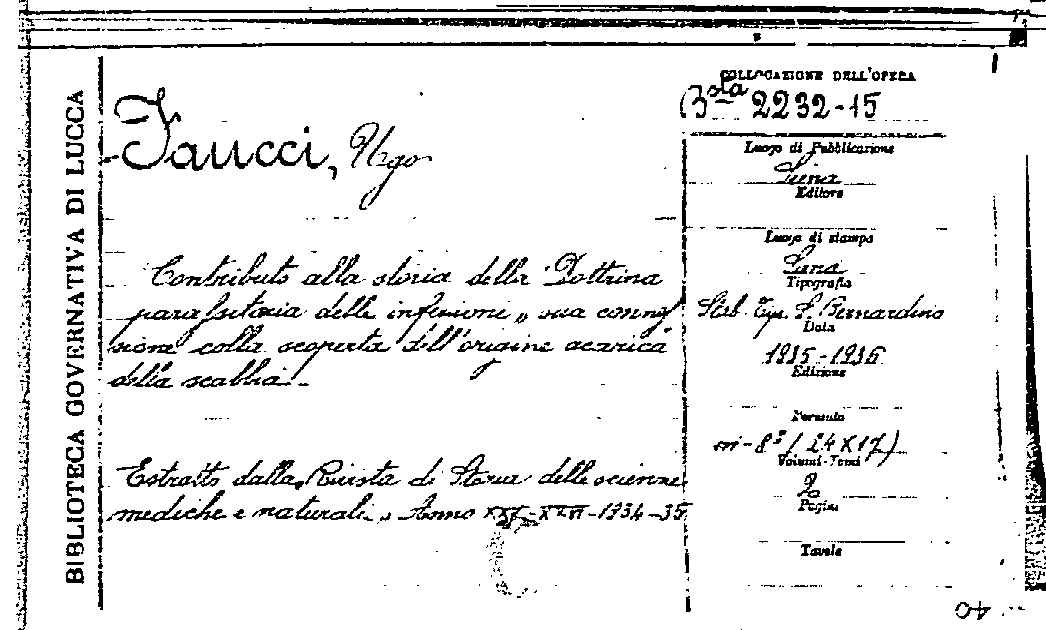 BIBLIOTECA GOVERNATIVA DI LUCCA
Faucci, Ugo
Contributo alla storia della Dottrina
parassitaria delle infezioni e sua connes
sione colla scoperta dell'origine acarica
della scabbia. -
Estratto dalla "Rivista di Storia delle scienze
mediche e naturali" Anno XXV-XXVI-1934-35
COLLOCAZIONE DELL'OPERA
Bsta 2232-15
Luogo di Pubblicazione
Siena
Editore
Luogo di stampa
Siena
Tipografia
Stab. Tip. S. Bernardino
Data
1935-1936
Edizione
Formato
in-8° (24 x 17)
Volumi-Tomi
2
Pagine
Tavole